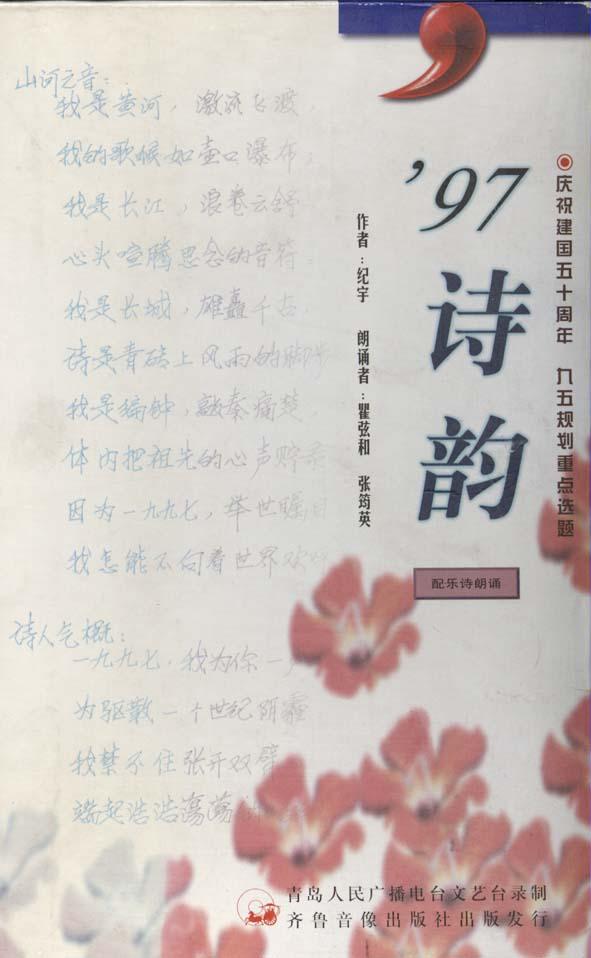 山河之音：
我是黄河，激流飞渡，
我的歌喉如壶口瀑布，
我是长江，浪卷云舒
心头喧腾思念的音符
我是长城，雄矗千古，
诗是青砖上风雨的脚步
我是编钟，敲奏痛楚，
体内把祖先的心声贮录
因为一九九七，举世瞩目
我怎能不向着世界欢呼
诗人气概：
一九九七，我为你一
为驱散一个世纪阴霾
我禁不住张开双臂
端起浩浩荡荡
'97
诗韵
作者：纪宇 朗诵者：瞿弦和 张筠英
庆祝建国五十周年 九五规划重点选题
配乐诗朗诵
青岛人民广播电台文艺台录制
齐鲁音像出版社出版发行